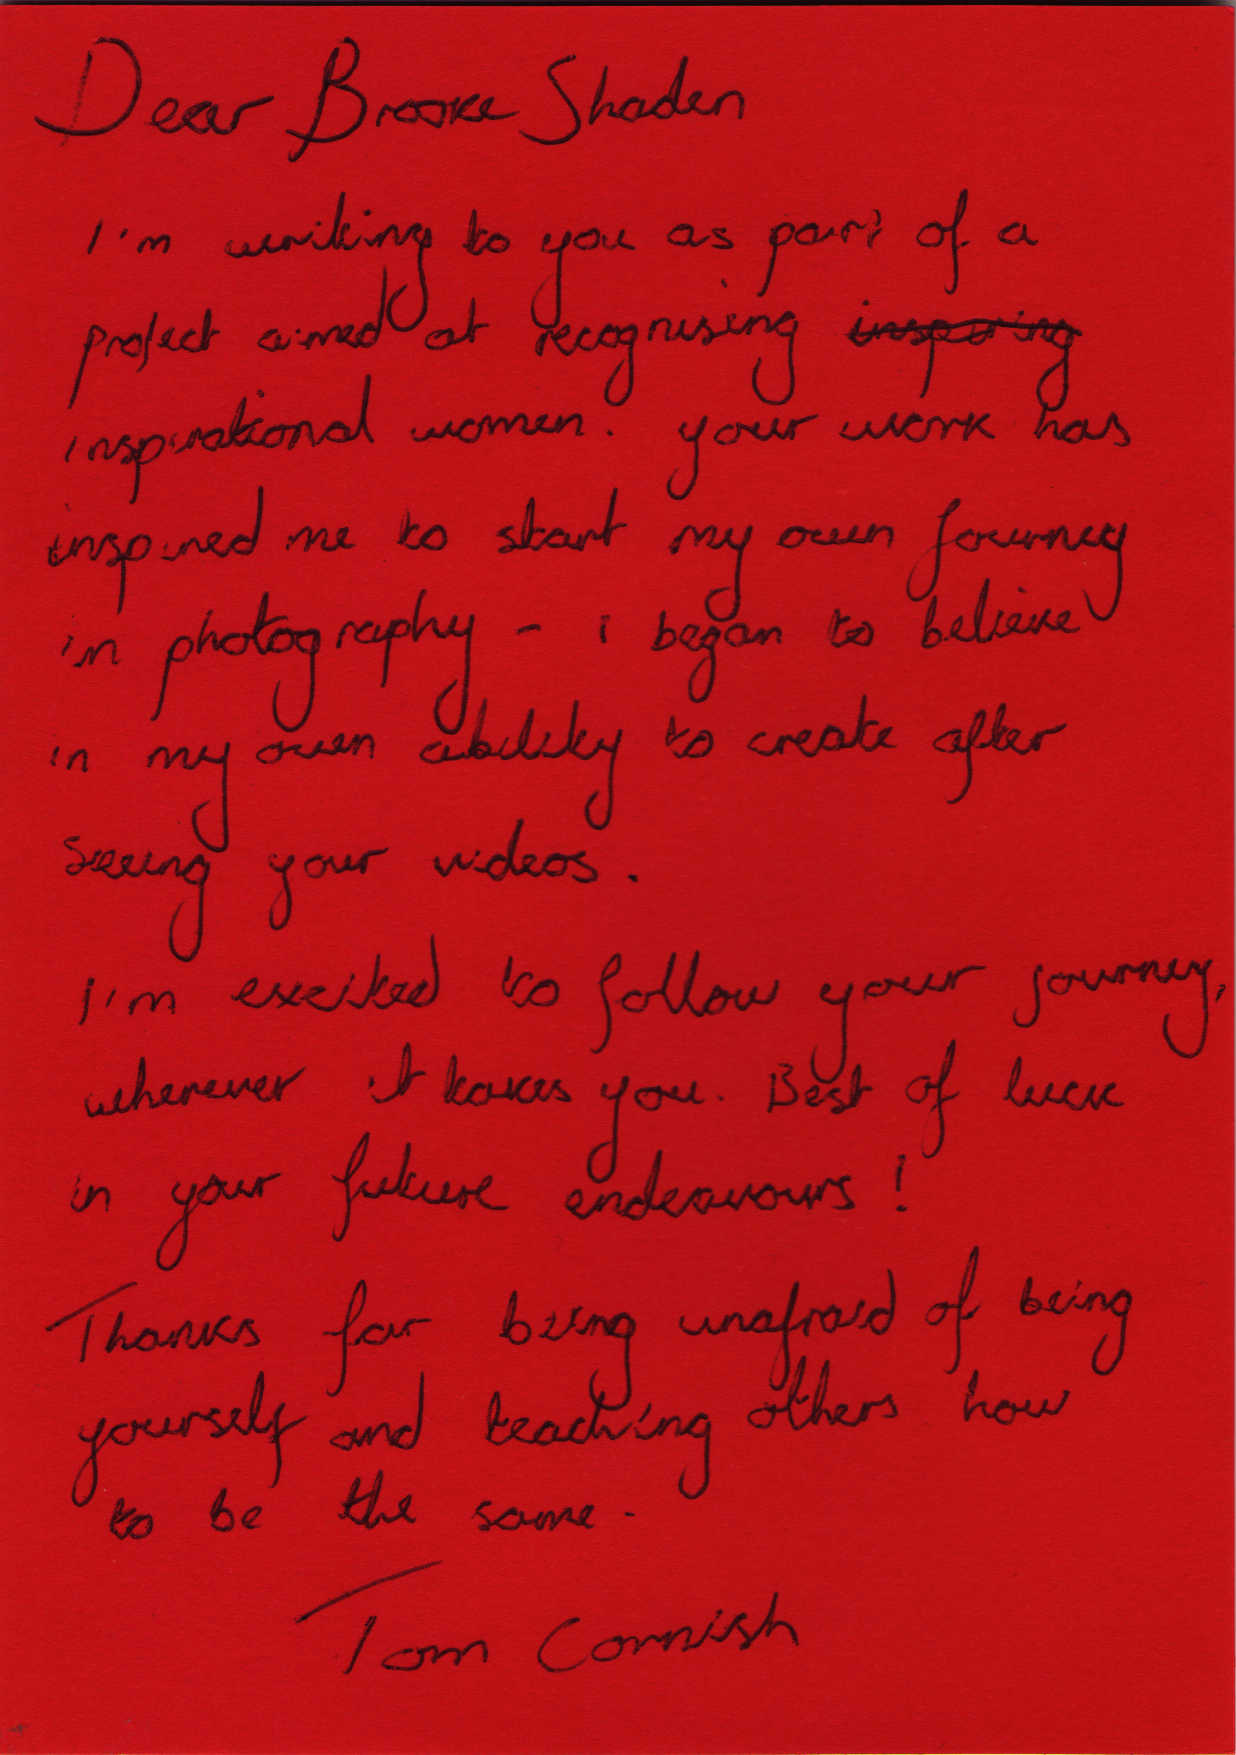 Dear Brooke Shaden
I'm writing to you as part of a
project aimed at recognising inspiring
inspirational women. your work has
inspired me to start my own journey
in photography - i began to believe
in my own ability to create after
seeing your videos.
I'm excited to follow your journey,
wherever it takes you. Best of luck
in your future endeavours!
Thanks for being unafraid of being
yourself and teaching others how
to be the same.
Tom Cornish